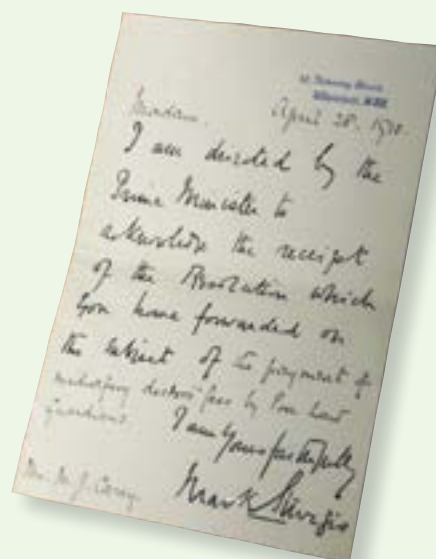 10, Downing Street,
Whitehall, S.W.
April 28, 1910.
Madam.
I am directed by the
Prime Minister to
acknowledge the receipt
of the Resolution which
you have forwarded on
the subject of the payment of
midwifery doctors' fees by Poor Law
Guardians.
I am yours faithfully
Mark Sturgis